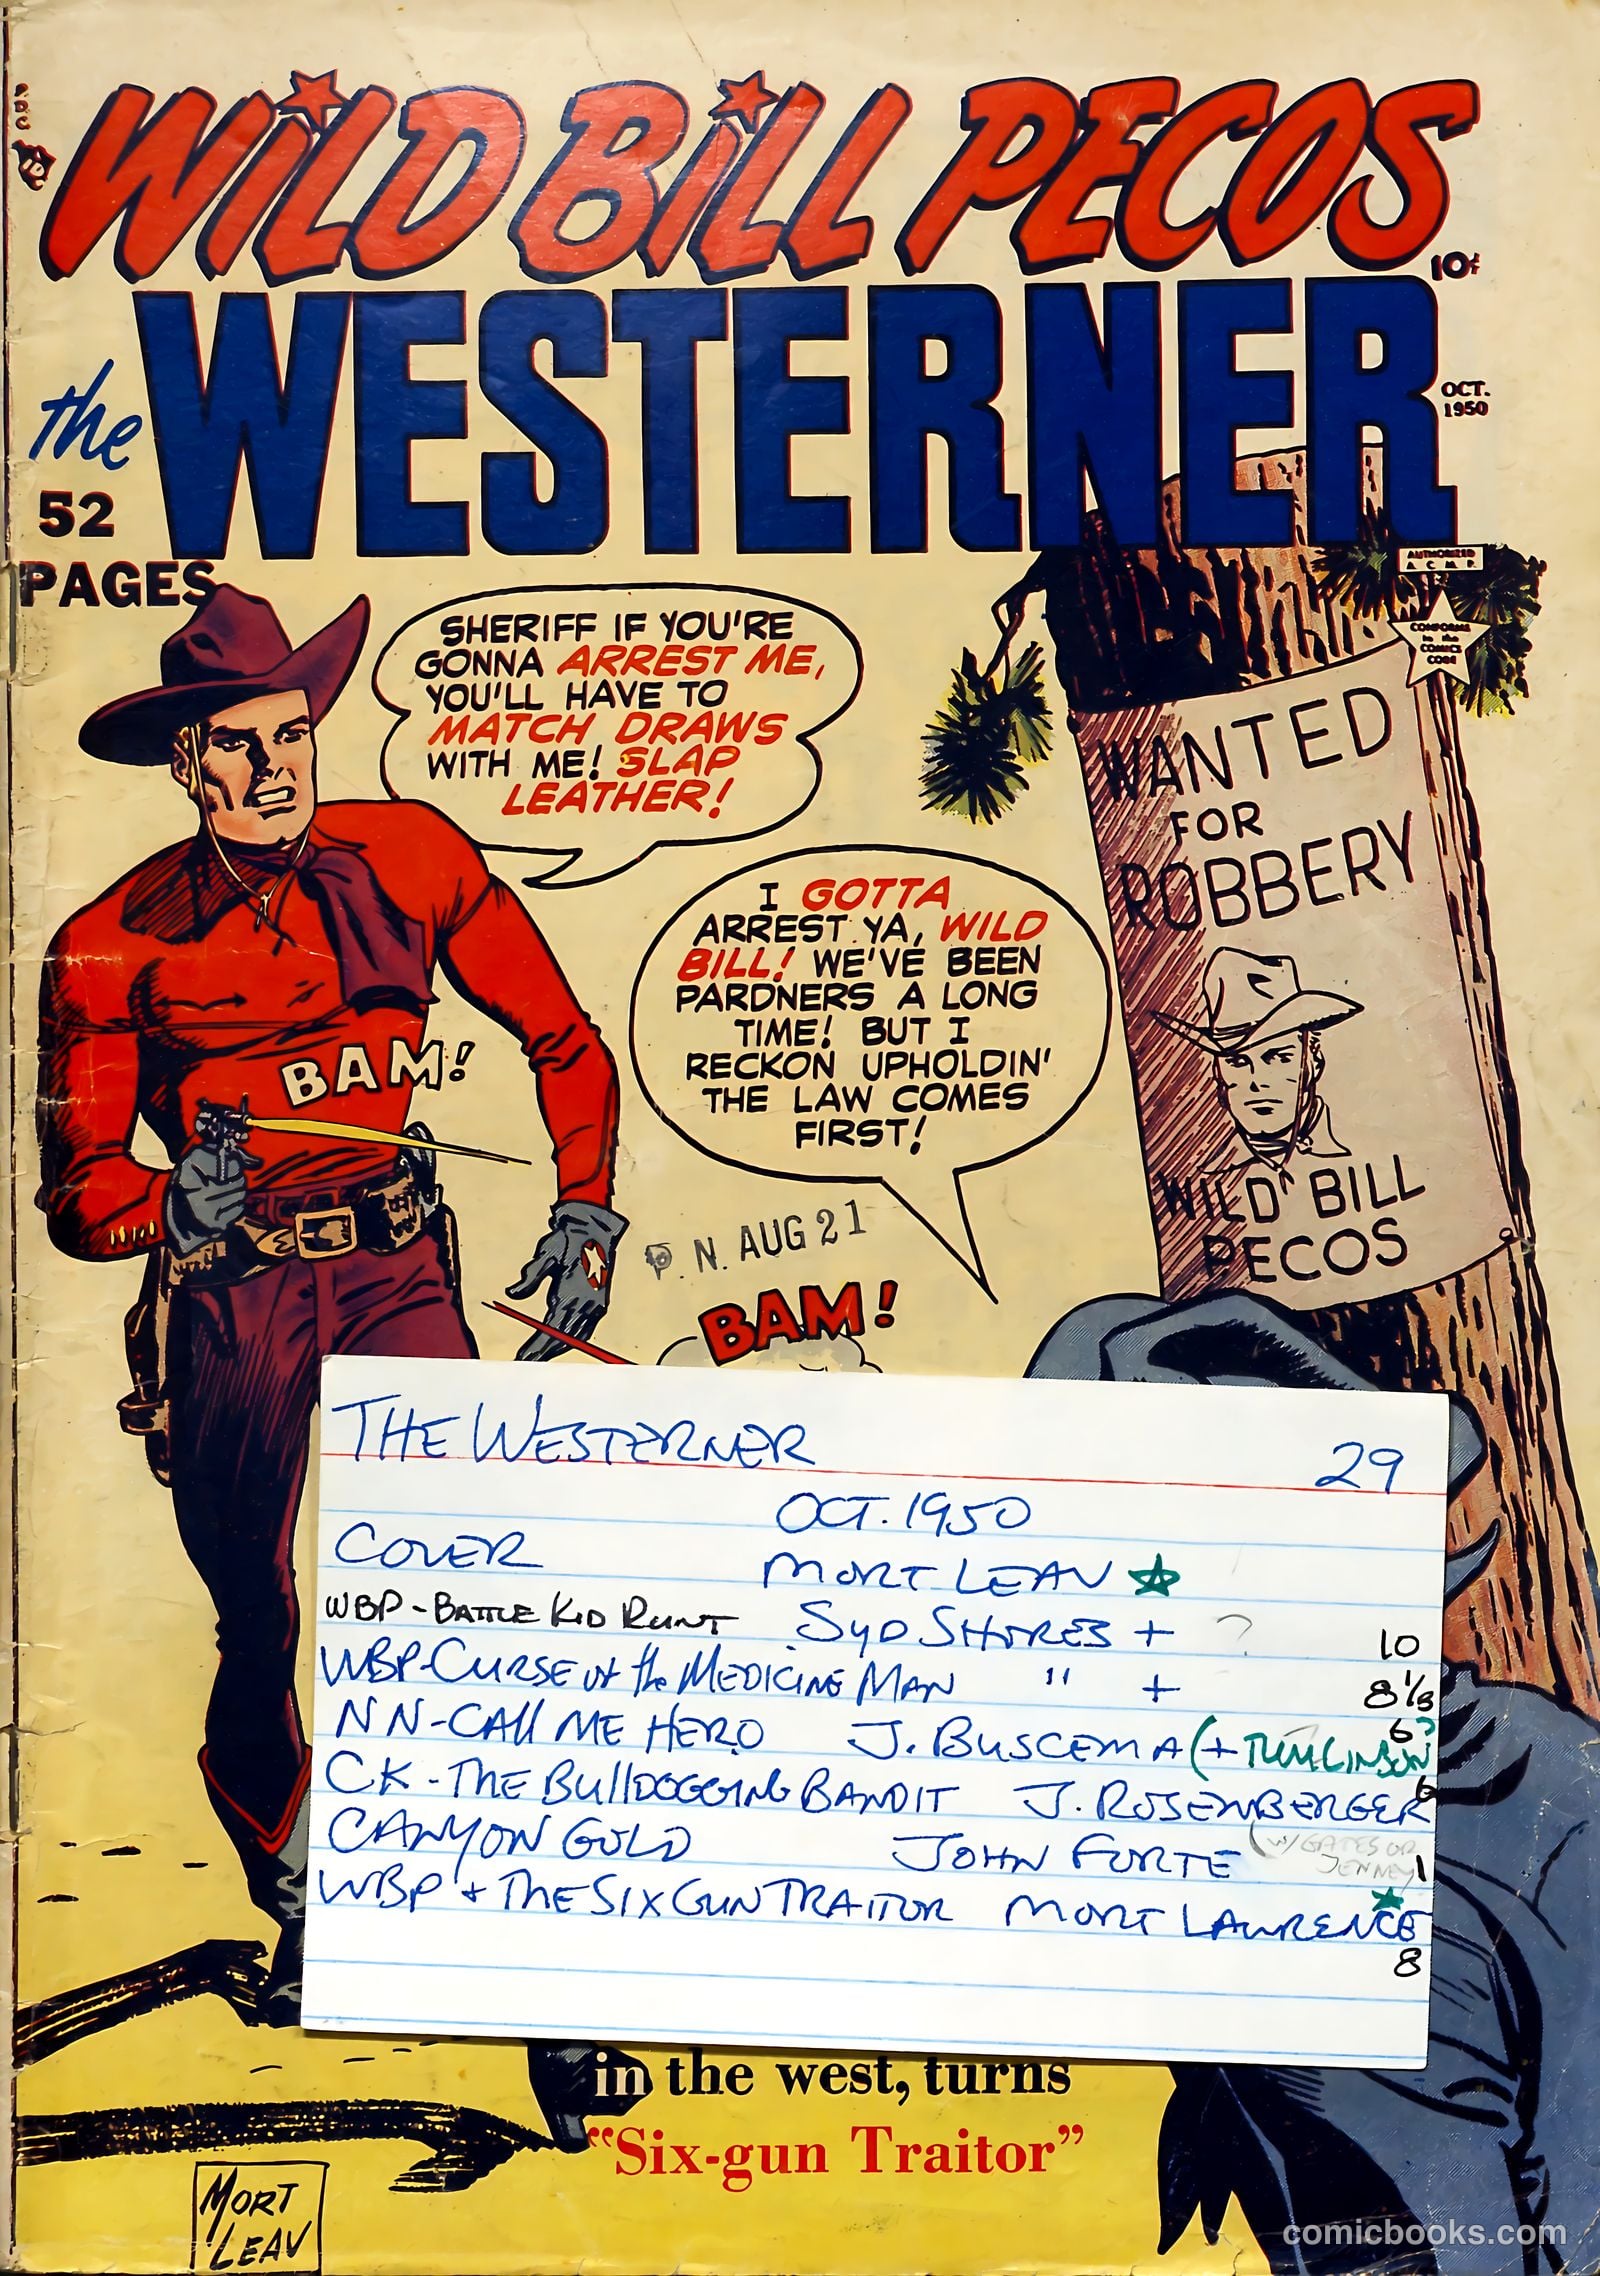 WiLD BiLL PECOS
10¢
the WESTERNER
OCT.
1950
52
PAGES
AUTHORIZED
A. C. M. P.
CONFORMS
to the
COMICS
CODE
SHERIFF IF YOU'RE
GONNA ARREST ME,
YOU'LL HAVE TO
MATCH DRAWS
WITH ME! SLAP
LEATHER!
WANTED
FOR
ROBBERY
I GOTTA
ARREST YA, WILD
BILL! WE'VE BEEN
PARDNERS A LONG
TIME! BUT I
RECKON UPHOLDIN'
THE LAW COMES
FIRST!
BAM!
WILD BILL
PECOS
P. N. AUG 21
BAM!
THE WESTERNER 29
OCT. 1950
COVER MORT LEAV ☆
WBP - BATTLE KID RUNT SYD SHORES + ? 10
WBP-CURSE of the MEDICINE MAN " + 8 1/3
NN-CAll ME HERO J. BUSCEMA (+ TUMLINSON 6?
CK - THE BUllDOGGING BANDIT J. ROSENBERGER 6
CANYON GOLD JOHN FORTE (w/ GATES OR
JENNEY) 1
WBP + THE SIX GUN TRAITOR MORT LAWRENCE ★
8
in the west, turns
“Six-gun Traitor”
MORT
LEAV
comicbooks.com